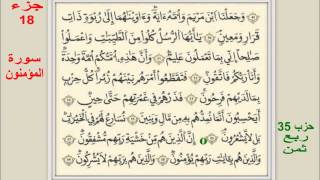 جزء
18
سورة
المؤمنون
وَجَعَلْنَا ٱبْنَ مَرْيَمَ وَأُمَّهُۥٓ ءَايَةً وَءَاوَيْنَٰهُمَآ إِلَىٰ رَبْوَةٍ ذَاتِ
قَرَارٍ وَمَعِينٍ يَٰٓأَيُّهَا ٱلرُّسُلُ كُلُوا۟ مِنَ ٱلطَّيِّبَٰتِ وَٱعْمَلُوا۟
صَٰلِحًا إِنِّى بِمَا تَعْمَلُونَ عَلِيمٌ وَإِنَّ هَٰذِهِۦٓ أُمَّتُكُمْ أُمَّةً وَٰحِدَةً
وَأَنَا۠ رَبُّكُمْ فَٱتَّقُونِ فَتَقَطَّعُوٓا۟ أَمْرَهُم بَيْنَهُمْ زُبُرًا كُلُّ حِزْبٍۭ
بِمَا لَدَيْهِمْ فَرِحُونَ فَذَرْهُمْ فِى غَمْرَتِهِمْ حَتَّىٰ حِينٍ
أَيَحْسَبُونَ أَنَّمَا نُمِدُّهُم بِهِۦ مِن مَّالٍ وَبَنِينَ نُسَارِعُ لَهُمْ فِى ٱلْخَيْرَٰتِ
بَل لَّا يَشْعُرُونَ إِنَّ ٱلَّذِينَ هُم مِّنْ خَشْيَةِ رَبِّهِم مُّشْفِقُونَ
وَٱلَّذِينَ هُم بِـَٔايَٰتِ رَبِّهِمْ يُؤْمِنُونَ وَٱلَّذِينَ هُم بِرَبِّهِمْ لَا يُشْرِكُونَ
حزب 35
ربع
ثمن